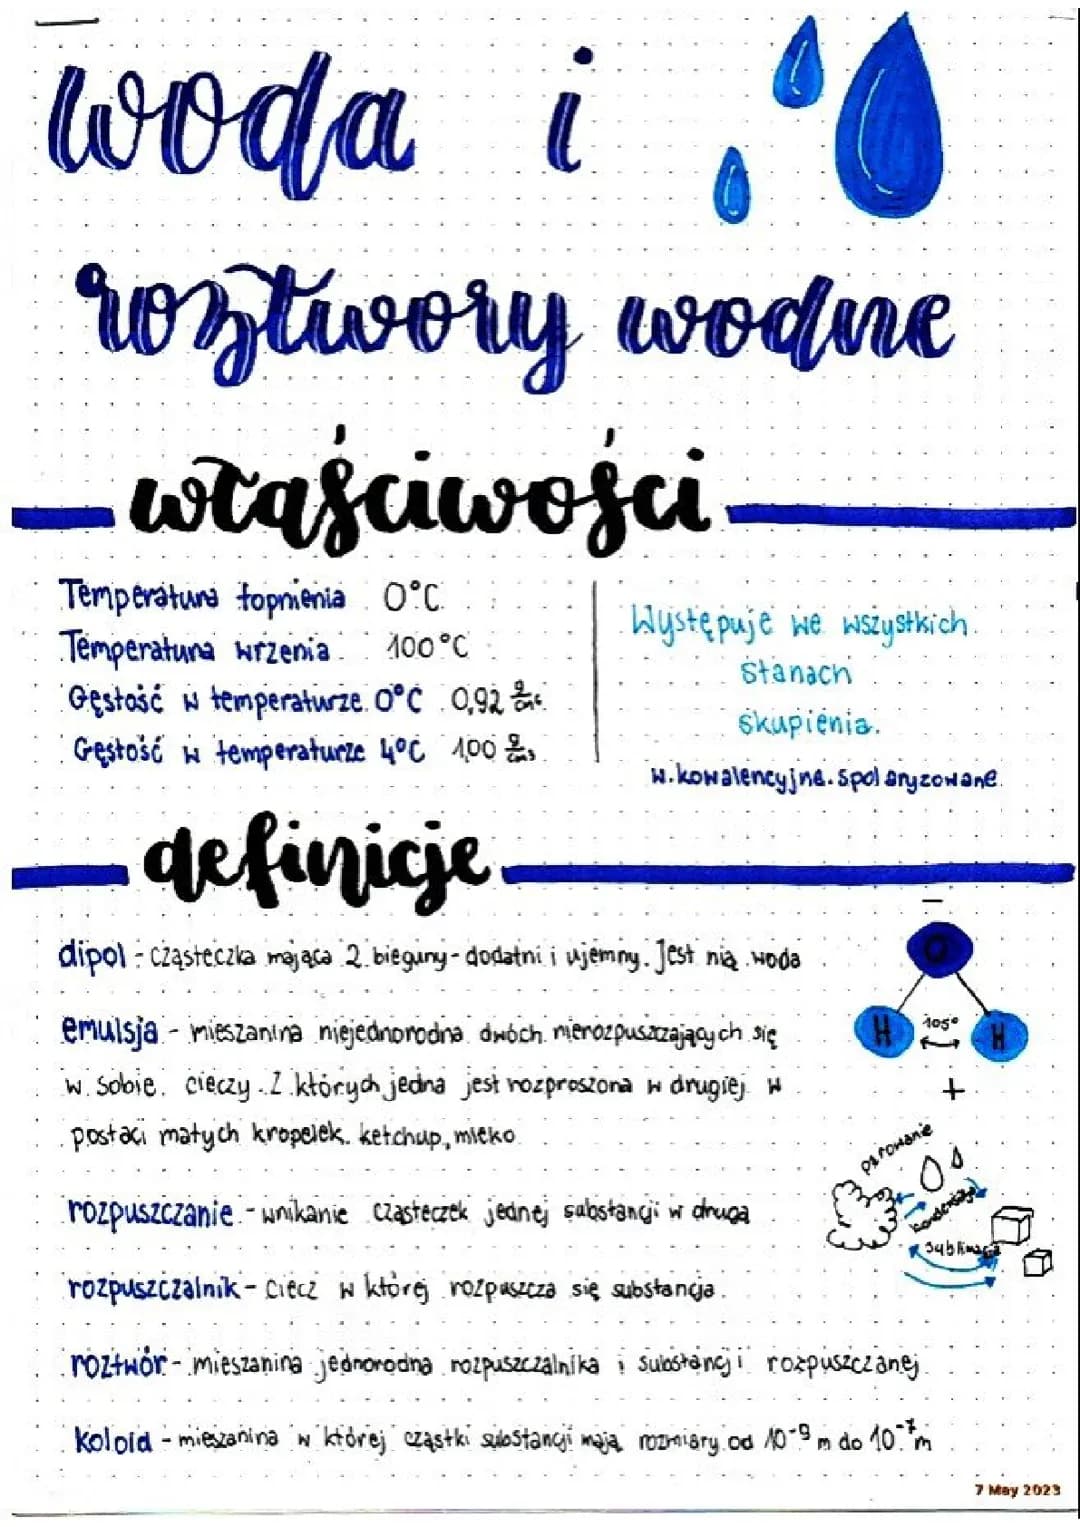 woda i
roztwory wodne
właściwości
Temperatura topnienia 0°C
Temperatura wrzenia 100°C
Gęstość w temperaturze 0°C 0,92
Gęstość w temperaturze 4°C 1,00
Występuje we wszystkich
stanach
skupienia.
w. kowalencyjne. spolaryzowane
definicje
dipol - cząsteczka mająca 2 bieguny - dodatni i ujemny. Jest nią woda
emulsja - mieszanina niejednorodna dwóch nierozpuszczających się
w sobie. cieczy. Z których jedna jest rozproszona w drugiej w
postaci małych kropelek. ketchup, mleko
rozpuszczanie - wnikanie cząsteczek jednej substancji w drugą
rozpuszczalnik - ciecz w której rozpuszcza się substancja.
roztwór - mieszanina jednorodna rozpuszczalnika i substancji rozpuszczanej
koloid - mieszanina w której cząstki substancji mają rozmiary od 10⁻⁹ m do 10⁻⁷ m
−
O
H 105° H
+
parowanie
sublimacja
7 May 2023